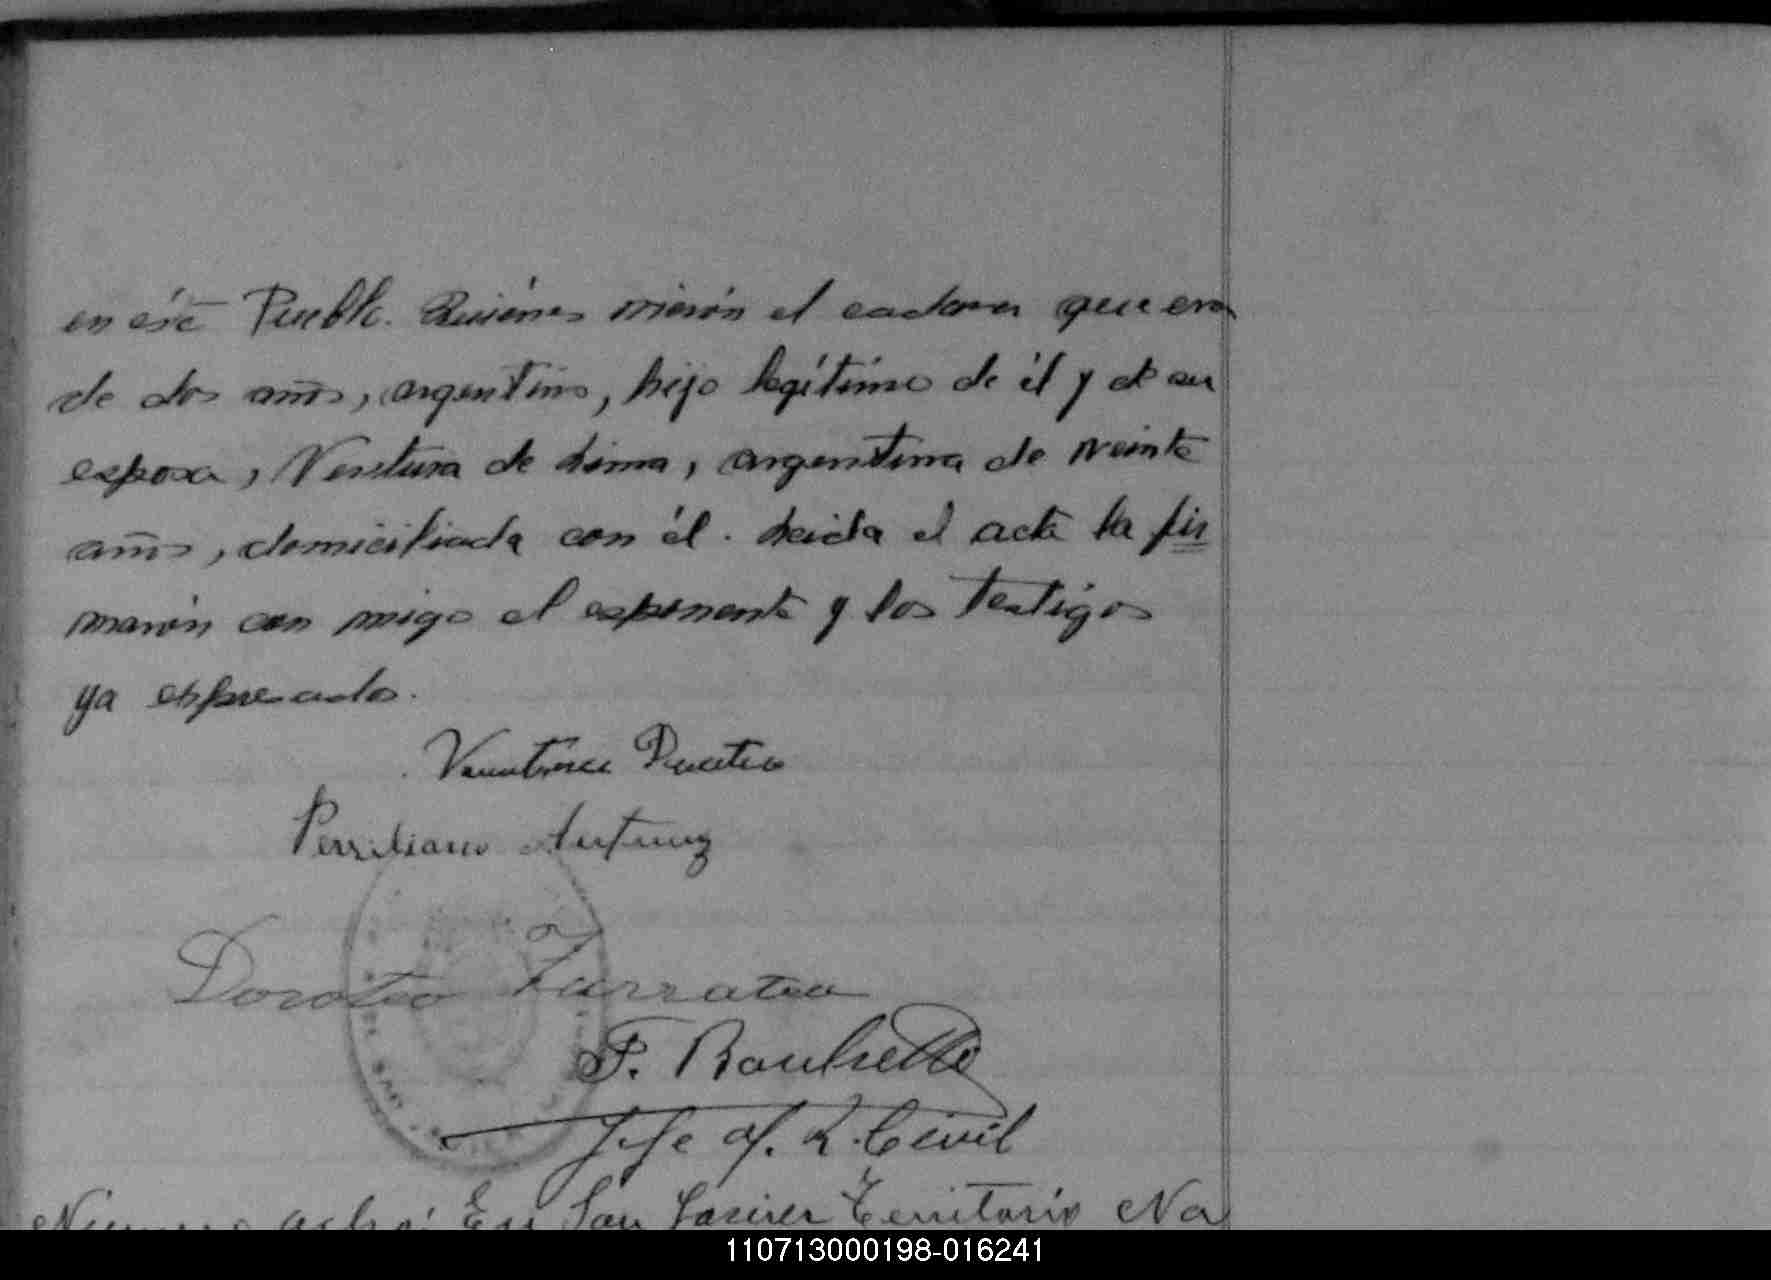 en éste Pueblo. Quiénes vierón el cadaver que era
de dos años, argentino, hijo legítimo de él y de su
esposa, Ventura de Lima, argentina de veinte
años, domiciliada con él. Leida el acta la fir
marón con migo el esponente y los testigos
ya espresados.
Dorotéo Zarratea
F.
Jefe Of. R. Civil
Número ocho: En San Javier Territorio Na
110713000198-016241